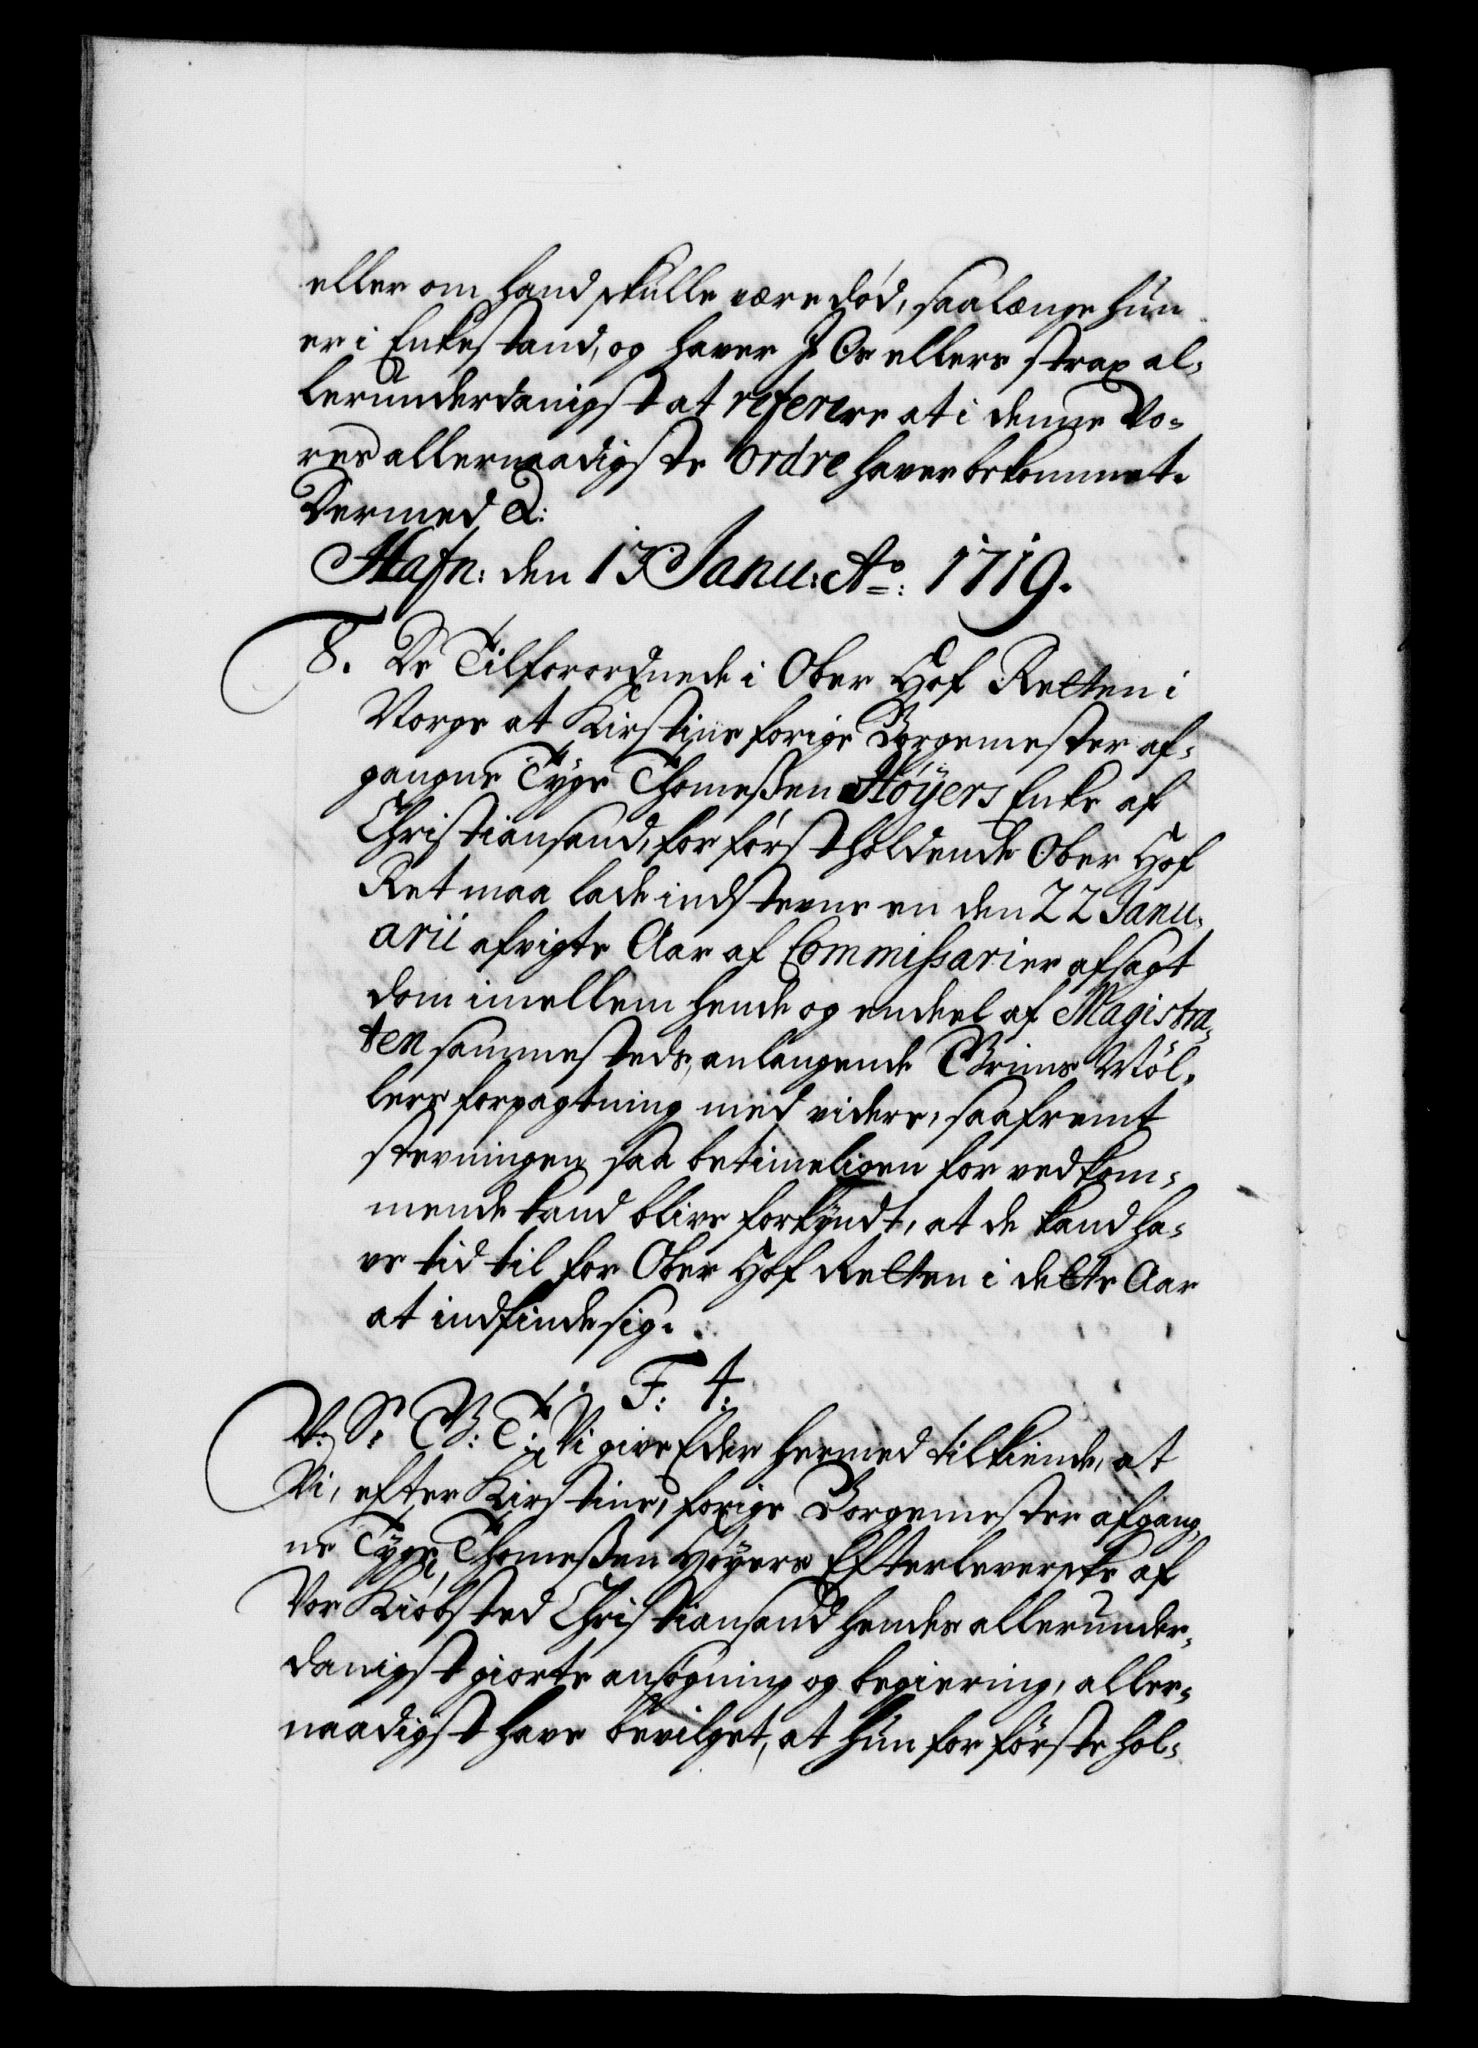 eller om hand skulle være död, saalænge hun
er i Enkestand, og haver I Os ellers strax al-
lerunderdanigst at referere at i denne Vo-
res allernaadigste ordre haver bekommet.
Dermed &:
Hafn: den 13 Janu: Ao: 1719.
8. De Tilforordnede i Ober Hof Retten i
Norge at Kirstine forige Borgemester af-
gangne Tyge Thomeßen Höyers Enke af
Christiansand, for först holdende Ober Hof
Ret maa lade indstevne en den 22 Janu-
arii afvigte Aar af Commissarier afsagt
dom imellem hende og endeel af Magistra-
ten sammesteds, anlangende Grims Möl-
lers forpagtning med videre, saafremt
stevningen saa betimeligen for vedkom-
mende kand blive forkyndt, at de kand ha-
ve tid til for Ober Hof Retten i dette Aar
at indfinde sig.
F: 4:
V: S: G: T: Vi give Eder hermed tilkiende, at
Vi, efter Kirstine, forige Borgemester afgang-
ne Tyge Thomeßen Höyers Efterleverske af
Vor Kiöbsted Christiansand hendes allerunder-
danigst giorte ansögning og begiering, aller-
naadigst have bevilget, at hun for förste hol-